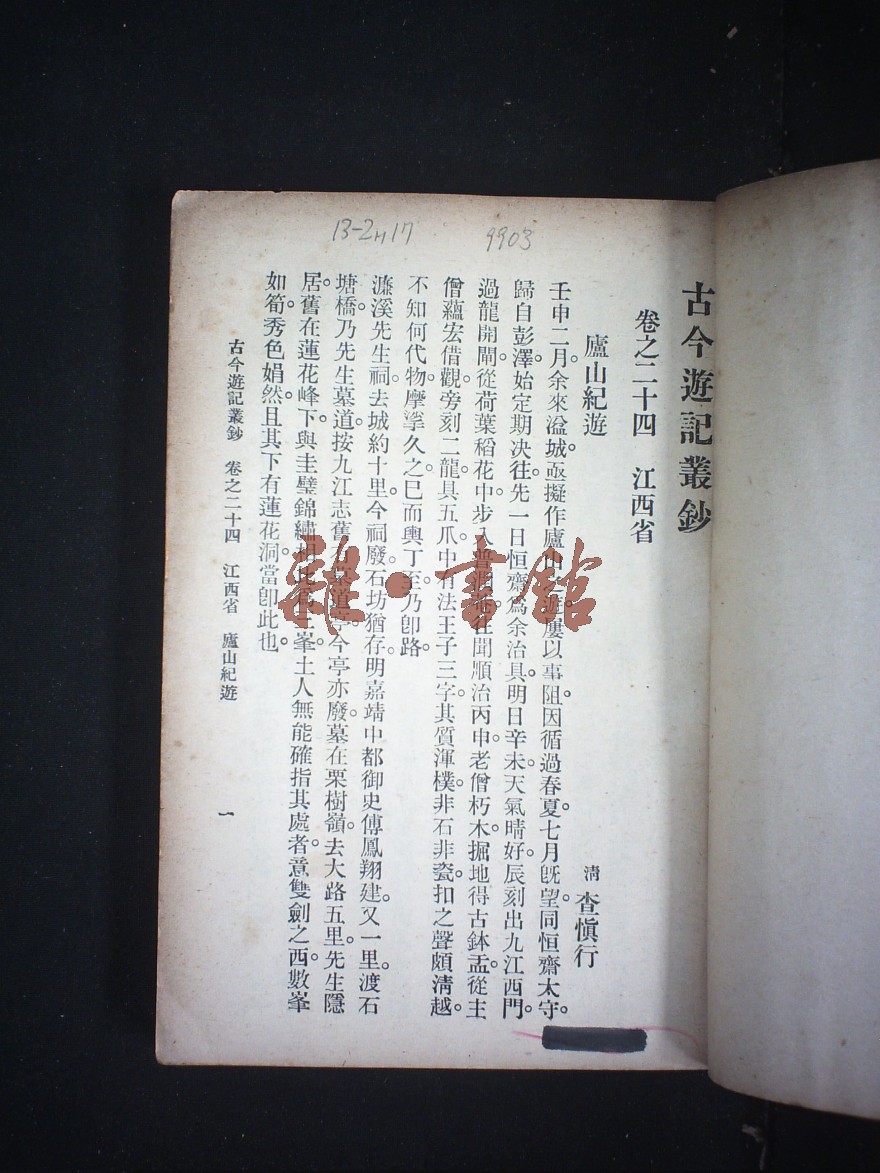 13-2H17
9903
古今遊記叢鈔
卷之二十四 江西省
廬山紀遊
清 查愼行
壬申二月余來湓城。亟擬作廬山遊。屢以事阻。因循過春夏。七月旣望。同恒齋太守。
歸自彭澤。始定期决往。先一日恒齋爲余治具。明日辛未。天氣晴好。辰刻出九江西門。
過龍開閘。從荷葉稻花中步入普。往聞順治丙申老僧朽木。掘地得古鉢盂。從主
僧蘊宏借觀。旁刻二龍。具五爪。中有法王子三字。其質渾樸。非石非瓷。扣之聲頗清越。
不知何代物。摩挲久之。已而輿丁至。乃卽路。
濂溪先生祠。去城約十里。今祠廢。石坊猶存。明嘉靖中都御史傅鳳翔建。又一里。渡石
塘橋。乃先生墓道。按九江志。舊有墓道亭。今亭亦廢。墓在栗樹嶺。去大路五里。先生隱
居。舊在蓮花峰下。與圭璧錦繡相比。爲二峯。土人無能確指其處者。意雙劍之西。數峯
如筍。秀色娟然。且其下有蓮花洞。當卽此也。
古今遊記叢鈔 卷之二十四 江西省 廬山紀遊
一
雜·書館